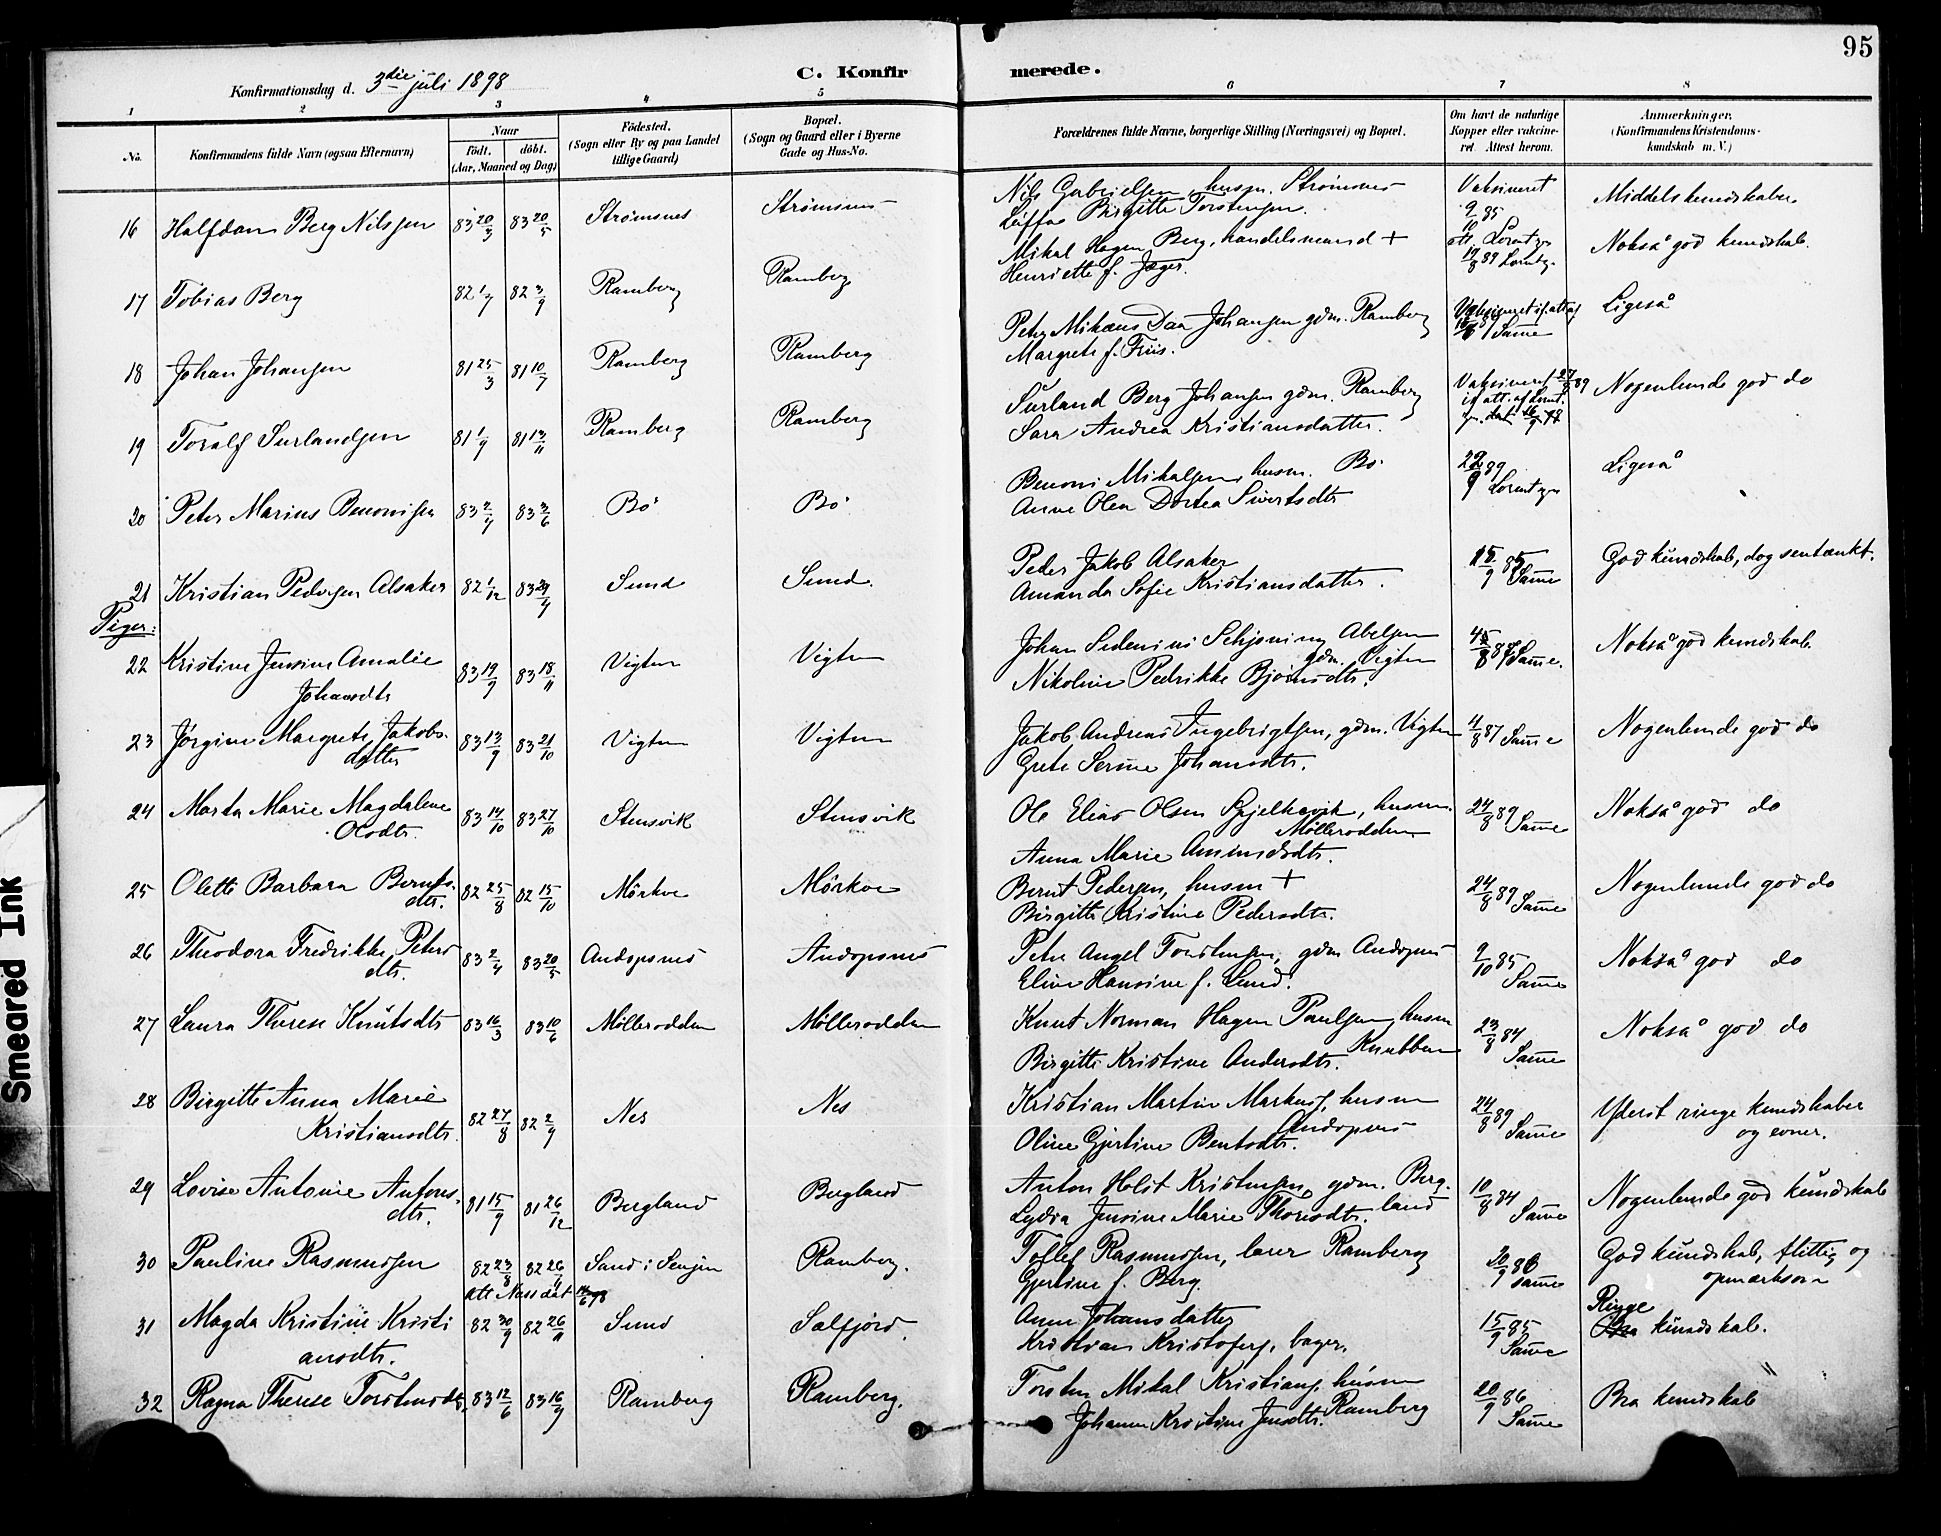 95
Konfirmationsdag d. 3die juli 1898
C. Konfirmerede.
1 2 3 4 5 6 7 8
No.
Konfirmandens fulde Navn (ogsaa Efternavn)
Naar
født. døbt.
(Aar, Maaned og Dag)
Födested.
(Sogn eller By og paa Landet
tillige Gaard)
Bopæl.
(Sogn og Gaard eller i Byerne
Gade og Hus-No.
Forældrenes fulde Navne, borgerlige Stilling (Næringsvei) og Bopæl.
Om havt de naturlige
Kopper eller vakcine-
ret. Attest herom.
Anmærkninger.
(Konfirmandens Kristendoms-
kundskab m. V.)
16 Halfdan Berg Nilssen 83 20/3 83 20/5 Strømsnes Strømsnes
Nils Gabrielsen, husm. Strømsnes
Birgitte Torstensen.
Vaksineret 9/10 85
Middels kundskaber
17 Tobias Berg 82 1/7 82 3/9 Ramberg Ramberg
Mikal Hagen Berg, handelsmand +
Henriette f. Jæger.
att. Lorntzen
19/8 89 Lorntz.
Nokså god kundskab.
18 Johan Johansen 81 25/3 81 10/7 Ramberg Ramberg
Peter Mikæus Daa Johansen gdm. Ramberg
Margrete f. Friis.
Same
Ligeså
19 Toralf Surlandsen 81 1/9 81 13/11 Ramberg Ramberg
Surland Berg Johansen gdm. Ramberg
Sara Andrea Kristiansdatter.
Vaksineret 27/8 89
if. att. af Lornt.
Nogenlunde god do
20 Peter Marius Benonisen 83 2/4 83 3/6 Bø Bø
Benoni Mikalsen, husm. Bø
Anne Olea Dortea Sivertsdtr
22/9 89 Lorntzen
Ligeså
21 Kristian Pedersen Alsaker 82 1/12 83 29/4 Sund Sund.
Peder Jakob Alsaker
Amanda Sofie Kristiansdatter.
15/9 85 Same
God kundskab, dog sentænkt.
Piger:
22 Kristine Jensine Amalie
Johansdtr 83 19/9 83 18/11 Vigten Vigten
Johan Sedenius Schjønning Abelsen
gdm. Vigten
Nikoline Pedrikke Bjørnsdtr.
Same.
Nokså god kundskab.
23 Jørgine Margrete Jakobs-
datter 83 13/9 83 21/10 Vigten Vigten
Jakob Andreas Ingebrigtsen, gdm. Vigten
Grete Serine Johansdtr.
4/8 87 Same
Nogenlunde god do
24 Marta Marie Magdalene
Olsdtr. 83 14/10 83 27/10 Stensvik Stensvik
Ole Elias Olsen Spjelkavik, husm.
Mølleródden
Anna Marie
24/8 89 Same
Nokså god do
25 Olette Barbara Bernts-
dtr. 82 25/8 82 15/10 Mørkve Mørkve
Bernt Pedersen, husm +
Birgitte Kristine Pedersdtr.
24/8 89 Same
Nogenlunde god do
26 Theodora Fredrikke Peters
dtr. 83 2/4 83 20/5 Andopsnes Andopsnes
Peter Angel Torstensen, gdm Andopnes
Eline Hansine f. Lund.
9/10 85 Same
Nokså god do
27 Laura Therese Knutsdtr 83 16/3 83 10/6 Møllerodden Møllerodden
Knut Norman Hagen Paulsen, husm
Knubben
Birgitte Kristine Andersdtr.
23/8 84 Same
Nokså god do
28 Birgitte Anna Marie
Kristiansdtr. 82 27/8 82 2/9 Nes Nes
Kristian Martin Markus., husm
Andopnes
Oline Gjertine Bentsdtr.
24/8 89 Same
Yderst ringe kundskaber
og evner.
29 Lovise Antonie Antons-
dtr. 81 15/9 81 26/12 Bergland Bergland
Anton Holst Kristensen, gdm. Berg-
land
Lydia Jensine Marie Thoresdtr.
10/8 84 Same
Nogenlunde god kundskab
30 Pauline Rasmussen 82 23/8 82 26/11 Sand i Senjen Ramberg.
att. Næss dat 14/6 98
Tollef Rasmussen, lærer Ramberg
Gjertine f. Berg.
20/9 86 Same
God kundskab, flittig og
opmærksom
31 Magda Kristine Kristi
ansdtr. 82 30/9 82 26/11 Sund Solfjord.
Anne Johansdatter
Kristian Kristofers. bager.
15/9 85 Same
Ringe
Bra kundskab.
32 Ragna Therese Torstensdtr. 83 12/6 83 16/9 Ramberg Ramberg.
Torsten Mikal Kristians. husm
Ramberg
Johanne Kristine Jensdtr.
20/9 86 Same
Bra kundskab
Smeared Ink